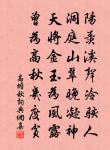 陽羨溪聲冷駭人
洞庭山翠晚凝神
天將金玉為風露
曾為高秋幾度貧
高蟾秋詞典網集